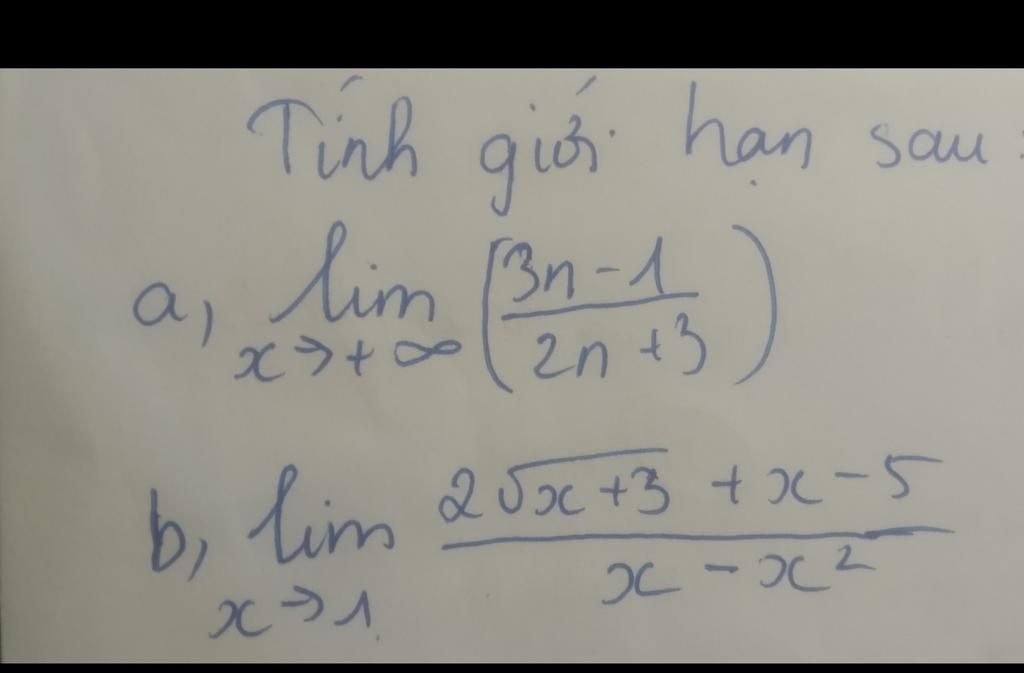 Tính giới hạn sau:
a, lim x→+∞ (3n-1 / 2n+3)
b, lim x→1 2√x+3 + x-5 / x-x²